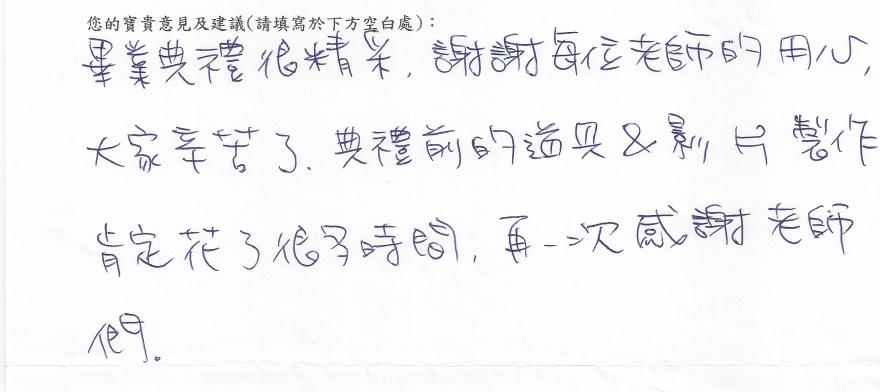 您的寶貴意見及建議(請填寫於下方空白處)：
畢業典禮很精采，謝謝每位老師的用心，
大家辛苦了．典禮前的道具&影片製作
肯定花了很多時間，再一次感謝老師
們．